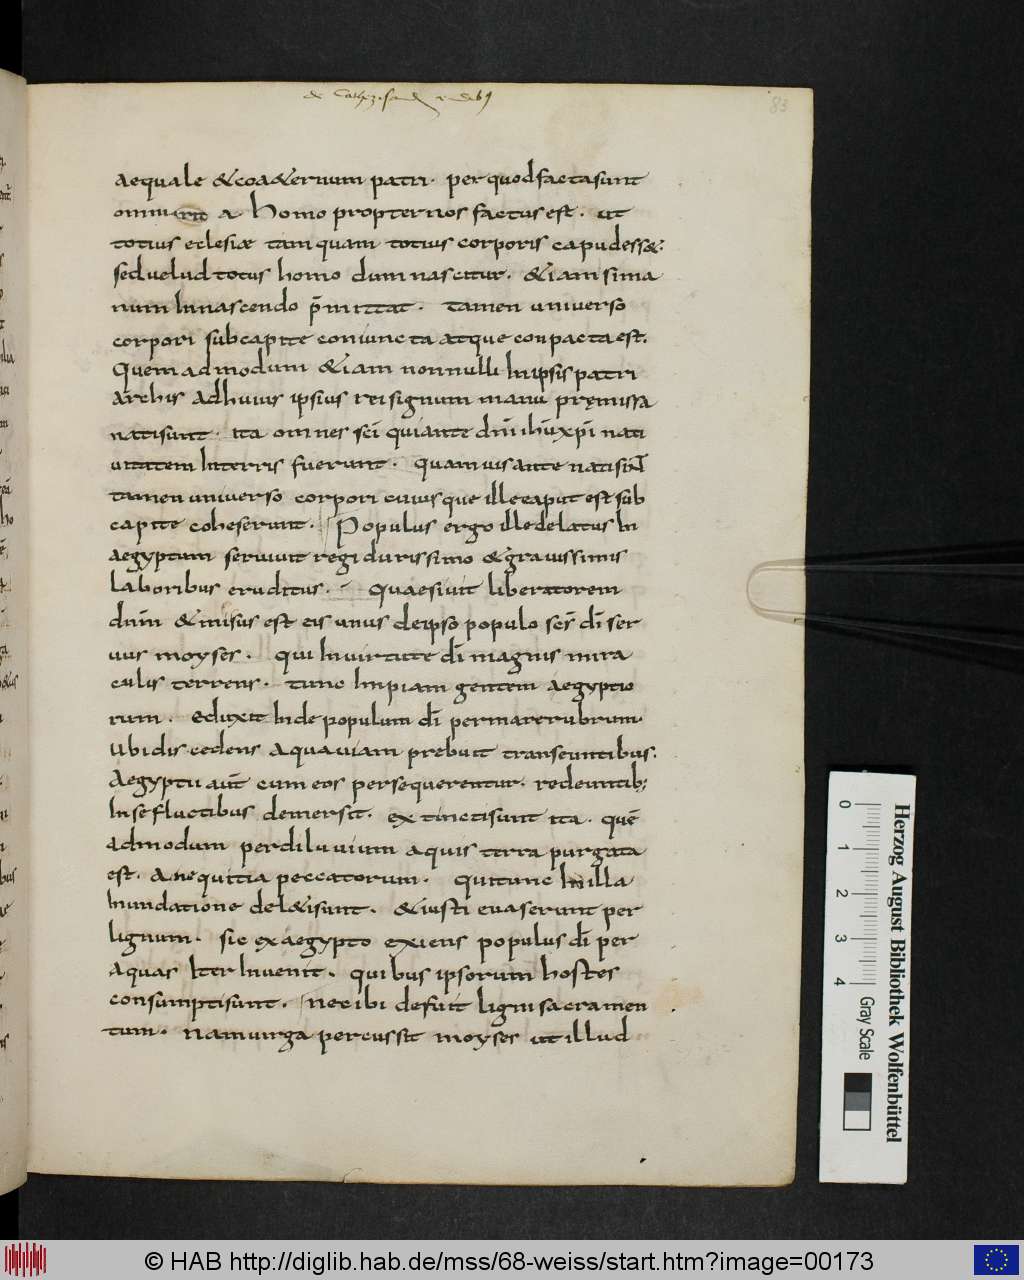 83
aequale &coa&ernum patri. per quod facta sunt
omnia homo propter nos factus est. ut
totius eclesiae tamquam totius corporis capud ess&:
sed uelud totus homo dum nascitur. &iam si ma
num in nascendo p̄mittat. tamen uniuerso
corpori sub capite coniuncta atque conpacta est.
Quem ad modum &iam nonnulli in ipsis patri
archis ad huius ipsius rei signum manu pręmissa
nati sunt. ita omnes sc̄i qui ante dn̄i ih̄u xp̄i nati
uitatem in terris fuerunt. quam uis ante nati sunt
tamen uniuerso corpori cuiusque ille caput est sub
capite coheserunt. Populus ergo ille delatus in
aegyptum seruiuit regi durissimo & grauissimis
laboribus eruditus. Quaesiuit liberatorem
dn̄m & misus est eis unus de ipso populo sc̄s dī ser
uus moyses. qui in uirtute dī magnis mira
culis terrens. tunc impiam gentem aegyptio
rum. eduxit inde populum dī per mare rubrum.
Ubi discedens aqua uiam prebuit transeuntibus.
Aegyptii aut̄ cum eos persequerentur. redeuntib;
in se fluctibus demersit. extincti sunt ita. quē
admodum per diluuium aquis terra purgata
est. a nequitia peccatorum. Qui tunc in illa
inundatione del&i sunt. & iusti euaserunt per
lignum. sic ex aegypto exiens populus dī per
aquas iter inuenit. quibus ipsorum hostes
consumpti sunt. nec ibi defuit ligni sacramen
tum. nam uirga percussit moyses ut illud
Herzog August Bibliothek Wolfenbüttel
0 1 2 3 4 Gray Scale
© HAB http://diglib.hab.de/mss/68-weiss/start.htm?image=00173